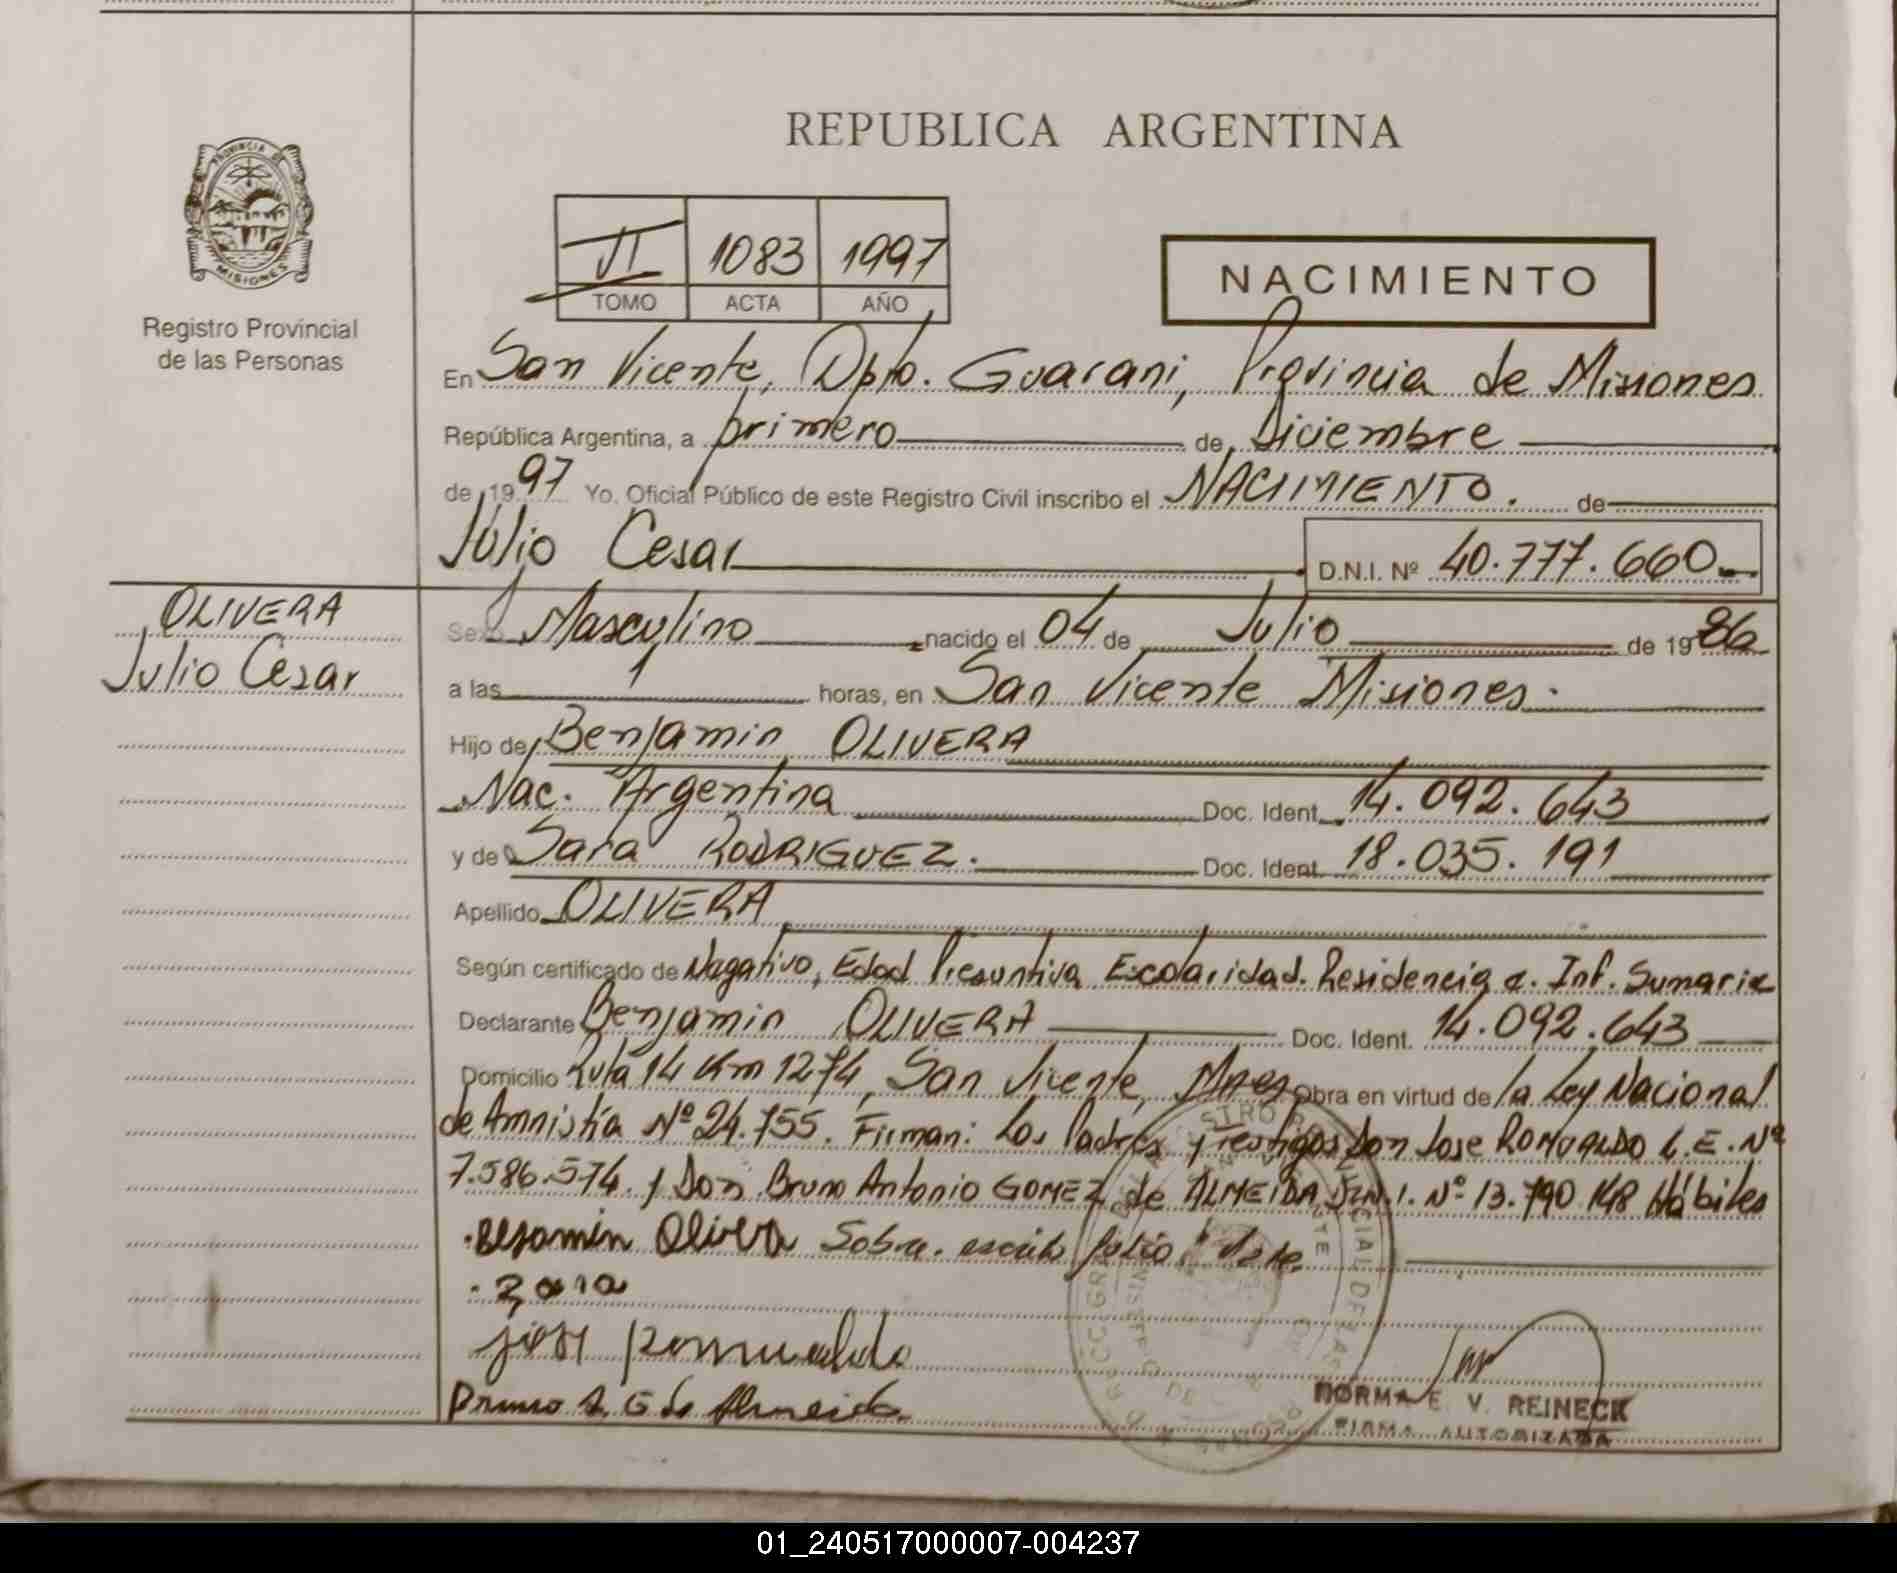 REPUBLICA ARGENTINA
PROVINCIA DE
MISIONES
Registro Provincial
de las Personas
VI 1083 1997
TOMO ACTA AÑO
NACIMIENTO
En San Vicente, Dpto. Guarani, Provincia de Misiones
República Argentina, a primero de Diciembre
de 1997 Yo, Oficial Público de este Registro Civil inscribo el NACIMIENTO. de
Julio Cesar D.N.I. Nº 40.777.660
OLIVERA
Julio Cesar
Sexo Masculino nacido el 04 de Julio de 1986
a las horas, en San Vicente Misiones.
Hijo de Benjamin OLIVERA
Nac. Argentina Doc. Ident. 14.092.643
y de Sara RODRIGUEZ. Doc. Ident. 18.035.191
Apellido OLIVERA
Según certificado de Nagativo, Edad Presuntiva Escolaridad. Residencia e. Inf. Sumaria
Declarante Benjamin OLIVERA Doc. Ident. 14.092.643
Domicilio Ruta 14 Km 1274, San Vicente, Mnes Obra en virtud de la Ley Nacional
de Amnistía Nº 24.755. Firman: Los Padres y testigos Don Jose ROMUALDO L.E. Nº
7.586.574. y Don Bruno Antonio GOMEZ de ALMEIDA D.N.I. Nº 13.790.148 Hábiles
Besamin Olivera Sobre. escrito Julio Vale
José Romualdo
Bruno A. G de Almeida
NORMA E. V. REINECK
FIRMA AUTORIZADA
01_240517000007-004237